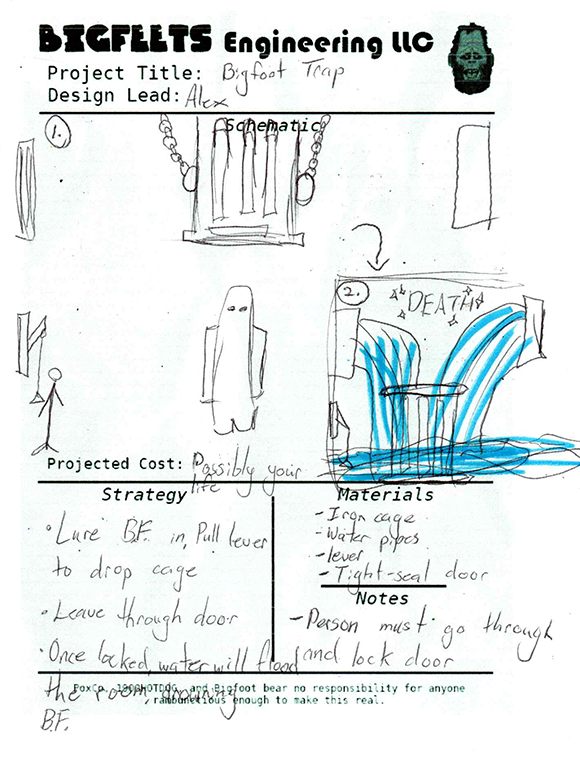 BIGFEETS Engineering LLC
Project Title: Bigfoot Trap
Design Lead: Alex
Schematic
1.
2.
DEATH
Projected Cost: Possibly your
life
Strategy
• Lure B.F. in, Pull lever
to drop cage
• Leave through door
• Once locked, water will flood
the room, drowning
B.F.
Materials
- Iron cage
- Water pipes
- lever
- Tight-seal door
Notes
- Person must go through
and lock door
FoxCo, 1900HOTDOG, and Bigfoot bear no responsibility for anyone
rambunctious enough to make this real.